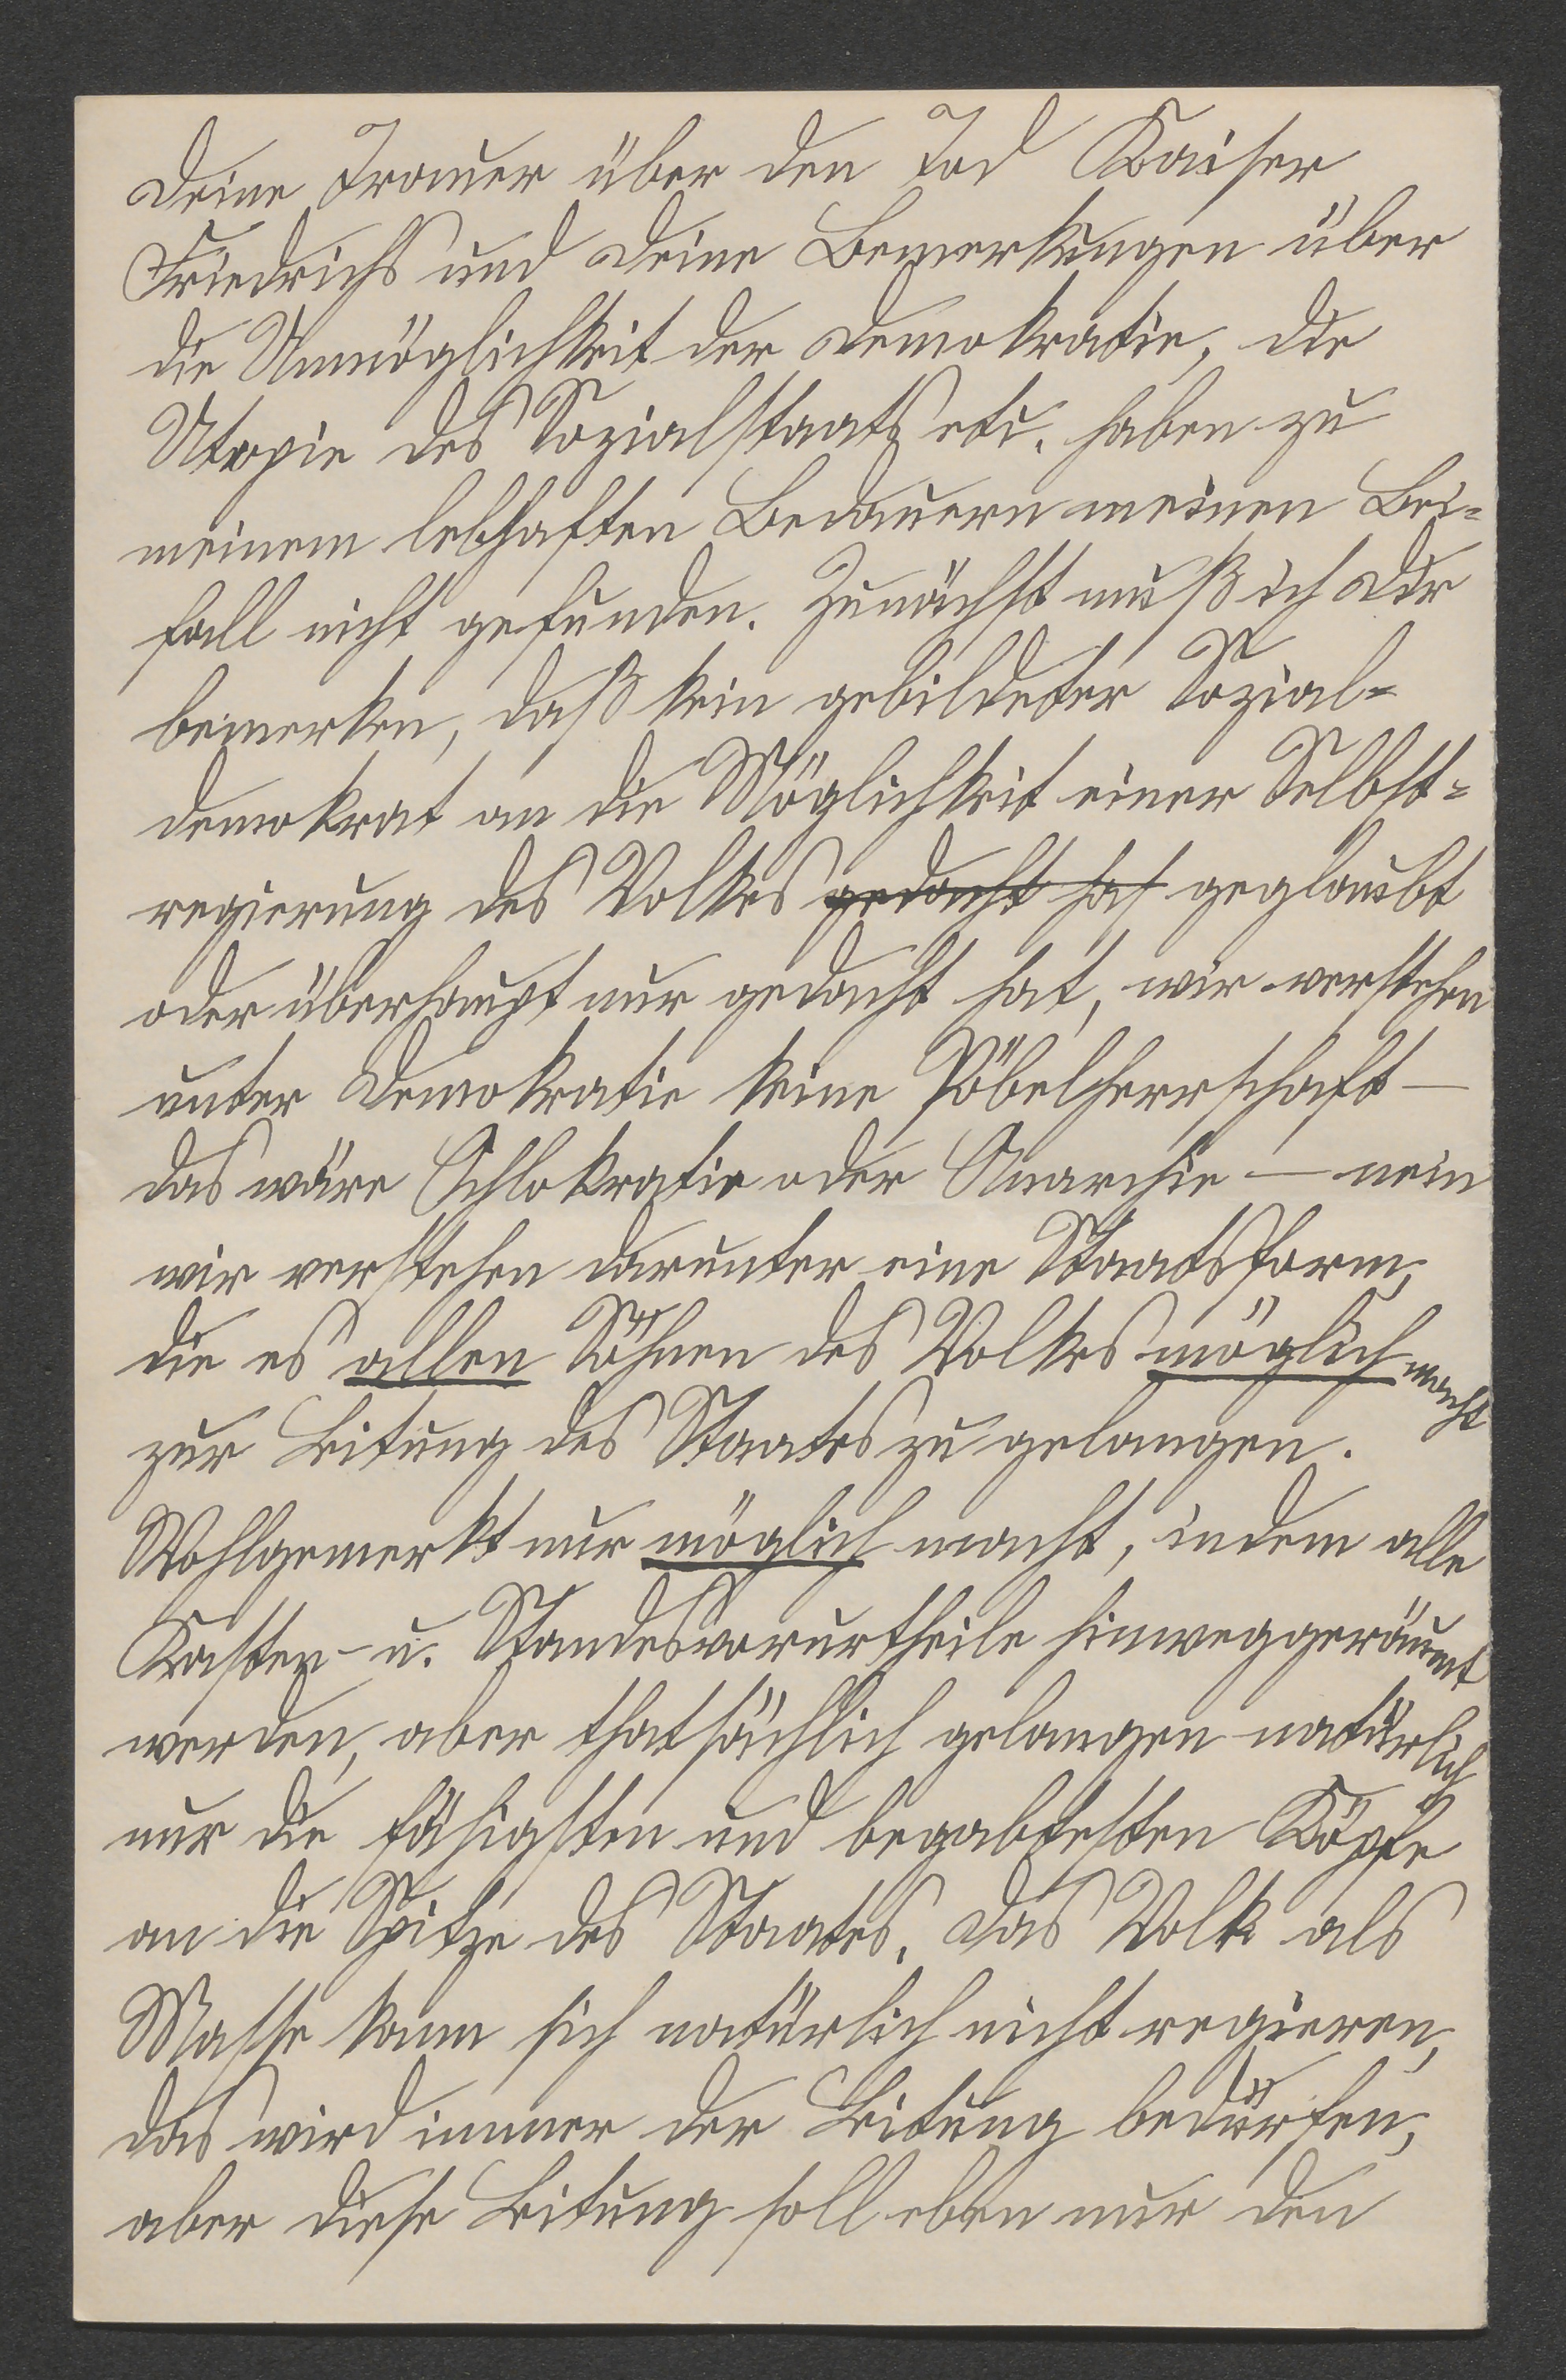 Deine Trauer über den Tod Kaiser
Friedrichs und Deine Bemerkungen über
die Unmöglichkeit der Demokratie, die
Utopie des Sozialstaats etc. haben zu
meinem lebhaften Bedauern meinen Bei-
fall nicht gefunden. Zunächst muß ich Dir
bemerken, daß kein gebildeter Sozial-
demokrat an die Möglichkeit einer Selbst-
regierung des Volkes gedacht hat geglaubt
oder überhaupt nur gedacht hat, wir verstehen
unter Demokratie keine Pöbelherrschaft —
das wäre Ochlokratie oder Anarchie — nein
wir verstehen darunter eine Staatsform,
die es allen Söhnen des Volkes möglich macht
zur Leitung des Staates zu gelangen.
Wohlgemerkt nur möglich macht, indem alle
Kasten- u. Standesvorurtheile hinweggeräumt
werden, aber thatsächlich gelangen natürlich
nur die fähigsten und begabtesten Köpfe
an die Spitze des Staates. Das Volk als
Masse kann sich natürlich nicht regieren,
das wird immer der Leitung bedürfen,
aber diese Leitung soll eben nur den